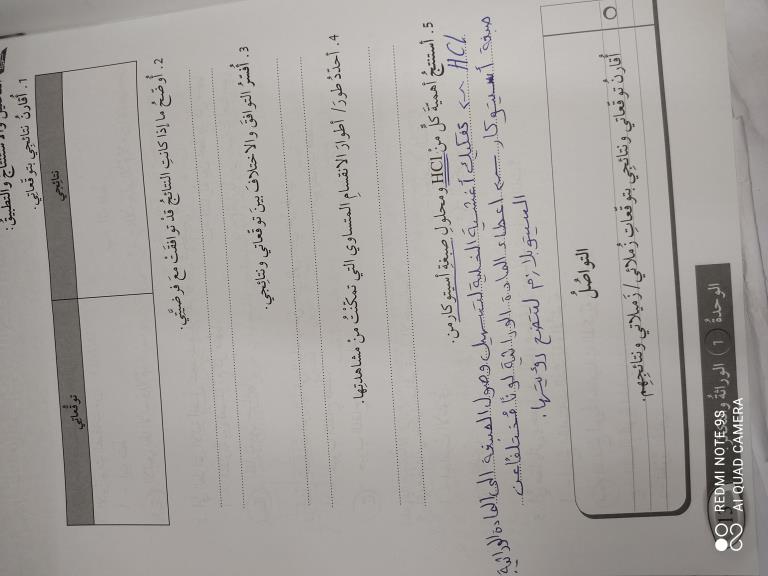 التحليل والاستنتاج والتطبيق:
1. أقارنُ نتائجي بتوقُّعاتي.
توقُّعاتي
نتائجي
2. أوضّحُ ما إذا كانتِ النتائجُ قدْ توافقَتْ معَ فرضيتي.
3. أفسّرُ التوافقَ والاختلافَ بينَ توقُّعاتي ونتائجي.
4. أحدّدُ طورَ/ أطوارَ الانقسامِ المتساوي التي تمكّنْتُ منْ مشاهدتِها.
5. أستنتجُ أهميةَ كلٍّ منْ HCl ومحلولِ صبغةِ أسيتوكارمن.
HCl ← تفكيك أغشية الخلية لتسهيل وصول الصبغة الى المادة الوراثية
صبغة أسيتوكار ← اعطاء المادة الوراثية لونًا مُختلفًا عن
السيتوبلازم لتتضح رؤيتها.
التواصُلُ
أقارنُ توقُّعاتي ونتائجي بتوقُّعاتِ زُملائي/ زَميلاتي ونتائجِهِم.
الوحدةُ 1 الوراثةُ
REDMI NOTE 9S
AI QUAD CAMERA